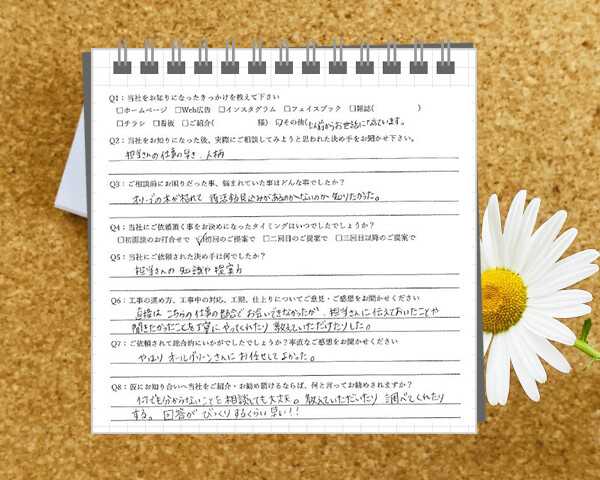 Q1：当社をお知りになったきっかけを教えて下さい
□ホームページ □Web広告 □インスタグラム □フェイスブック □雑誌( )
□チラシ □看板 □ご紹介( 様) ☑その他(以前からお世話になっています。
Q2：当社をお知りになった後、実際にご相談してみようと思われた決め手をお聞かせ下さい。
担当さんの仕事の早さ、人柄
Q3：ご相談前にお困りだった事、悩まれていた事はどんな事でしたか？
オリーブの木が枯れて 復活する見込みがあるのかないのか知りたかった。
Q4：当社にご依頼頂く事をお決めになったタイミングはいつでしたでしょうか？
□初面談のお打合せで ☑初回のご提案で □二回目のご提案で □三回目以降のご提案で
Q5：当社にご依頼された決め手は何でしたか？
担当さんの知識や提案力
Q6：工事の進め方、工事中の対応、工期、仕上りについてご意見・ご感想をお聞かせください
直接は こちらの仕事の都合でお会いできなかったが、担当さんに伝えておいたことや
聞きたかったことを丁寧にやってくれたり 教えていただけたりした。
Q7：ご依頼されて総合的にいかがでしたでしょうか？率直なご感想をお聞かせください
やはり オールグリーンさんに お任せしてよかった。
Q8：仮にお知り合いへ当社をご紹介・お勧め頂けるならば、何と言ってお勧めされますか？
何でも分からないことを相談しても大丈夫。教えていただいたり 調べてくれたり
する。回答が びっくりするくらい早い！！